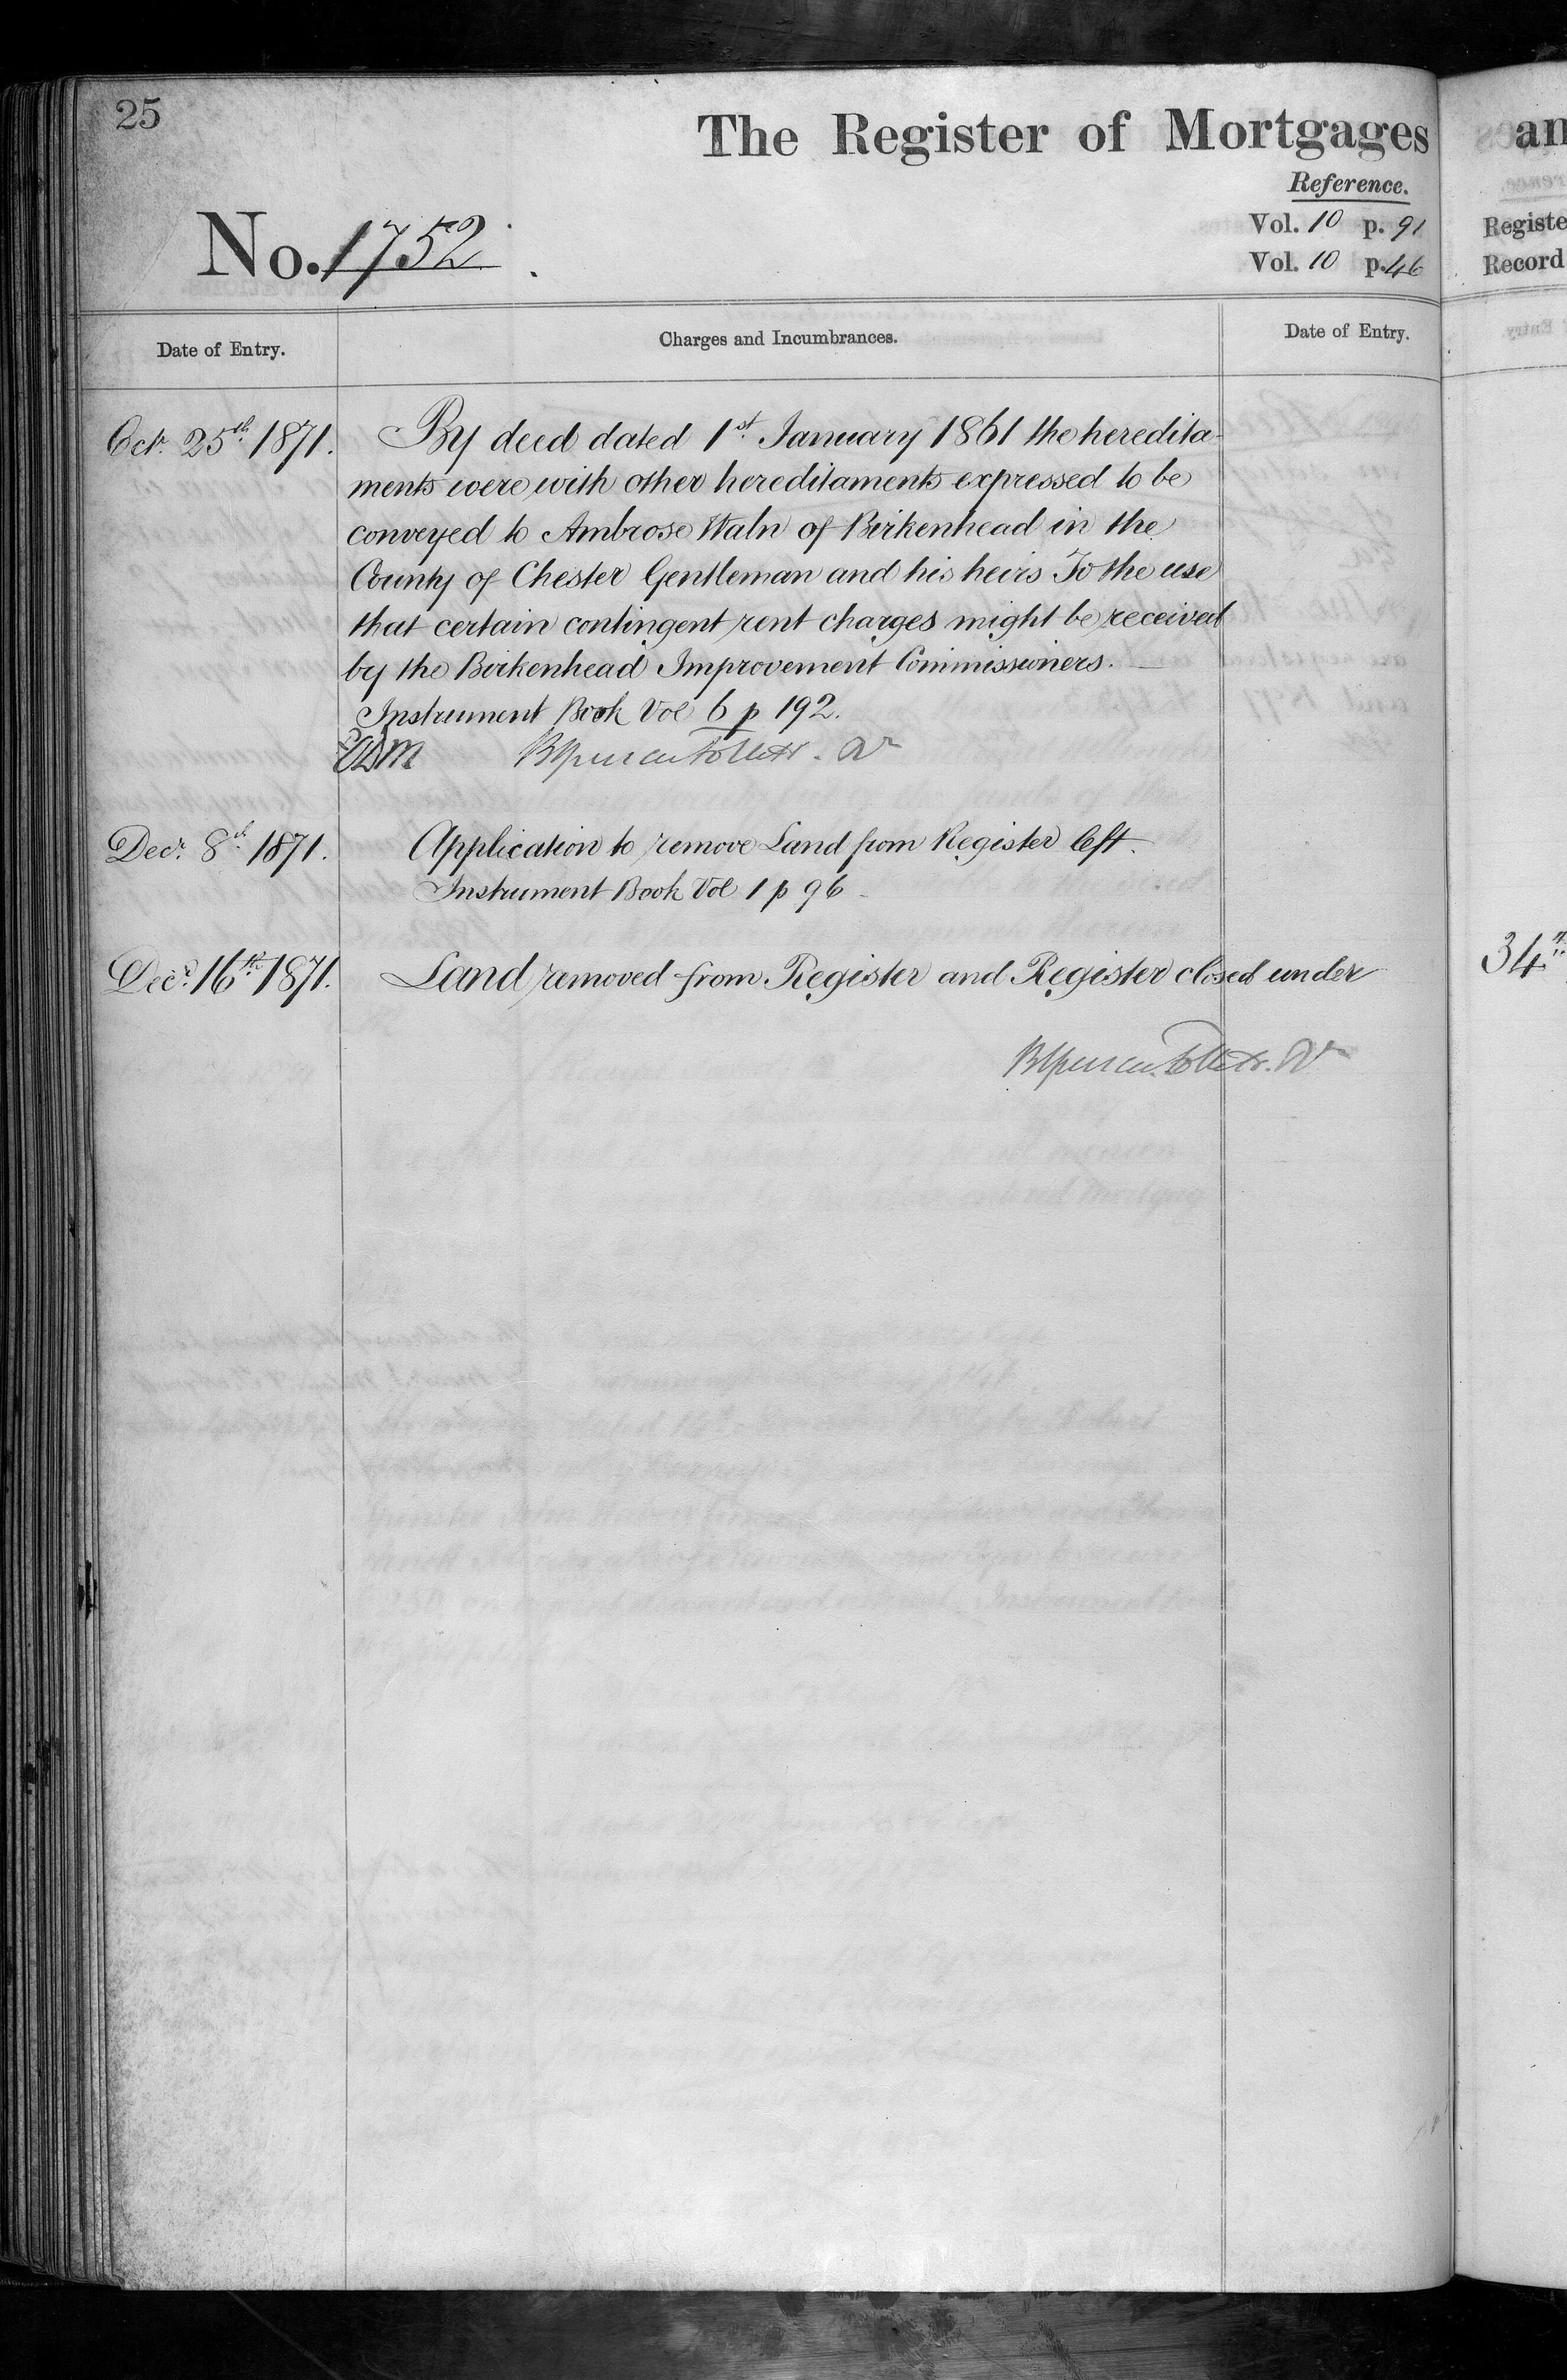 25
The Register of Mortgages
an
Reference.
No. 1752.
Vol. 10 p. 91
Registe
Vol. 10 p. 46
Record
Date of Entry.
Charges and Incumbrances.
Date of Entry.
Octr. 25th 1871.
By deed dated 1st January 1861 the heredita-
ments were with other hereditaments expressed to be
conveyed to Ambrose Waln of Birkenhead in the
County of Chester Gentleman and his heirs To the use
that certain contingent rent charges might be received
by the Birkenhead Improvement Commissioners.
Instrument Book Vol 6 p 192.
Decr. 8th 1871.
Application to remove Land from Register left.
Instrument Book Vol 1 p 96
Decr. 16th 1871.
Land removed from Register and Register closed under
34